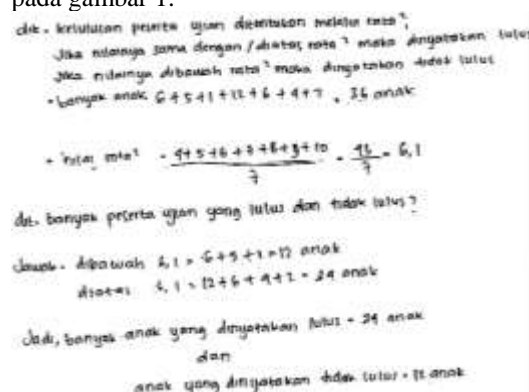 pada gambar 1.
dik. kelulusan peserta ujian ditentukan melalui rata²,
Jika nilainya sama dengan / diatas rata² maka dinyatakan lulus
Jika nilainya dibawah rata² maka dinyatakan tidak lulus
• banyak anak 6 + 5 + 1 + 12 + 6 + 4 + 2 = 36 anak
• nilai rata² = 4 + 5 + 6 + 7 + 8 + 9 + 10 / 7 = / 7 = 6,1
dit. banyak peserta ujian yang lulus dan tidak lulus ?
Jawab. dibawah 6,1 = 6 + 5 + 1 = 12 anak
diatas 6,1 = 12 + 6 + 4 + 2 = 24 anak
Jadi, banyak anak yang dinyatakan lulus = 24 anak
dan
anak yang dinyatakan tidak lulus = 12 anak